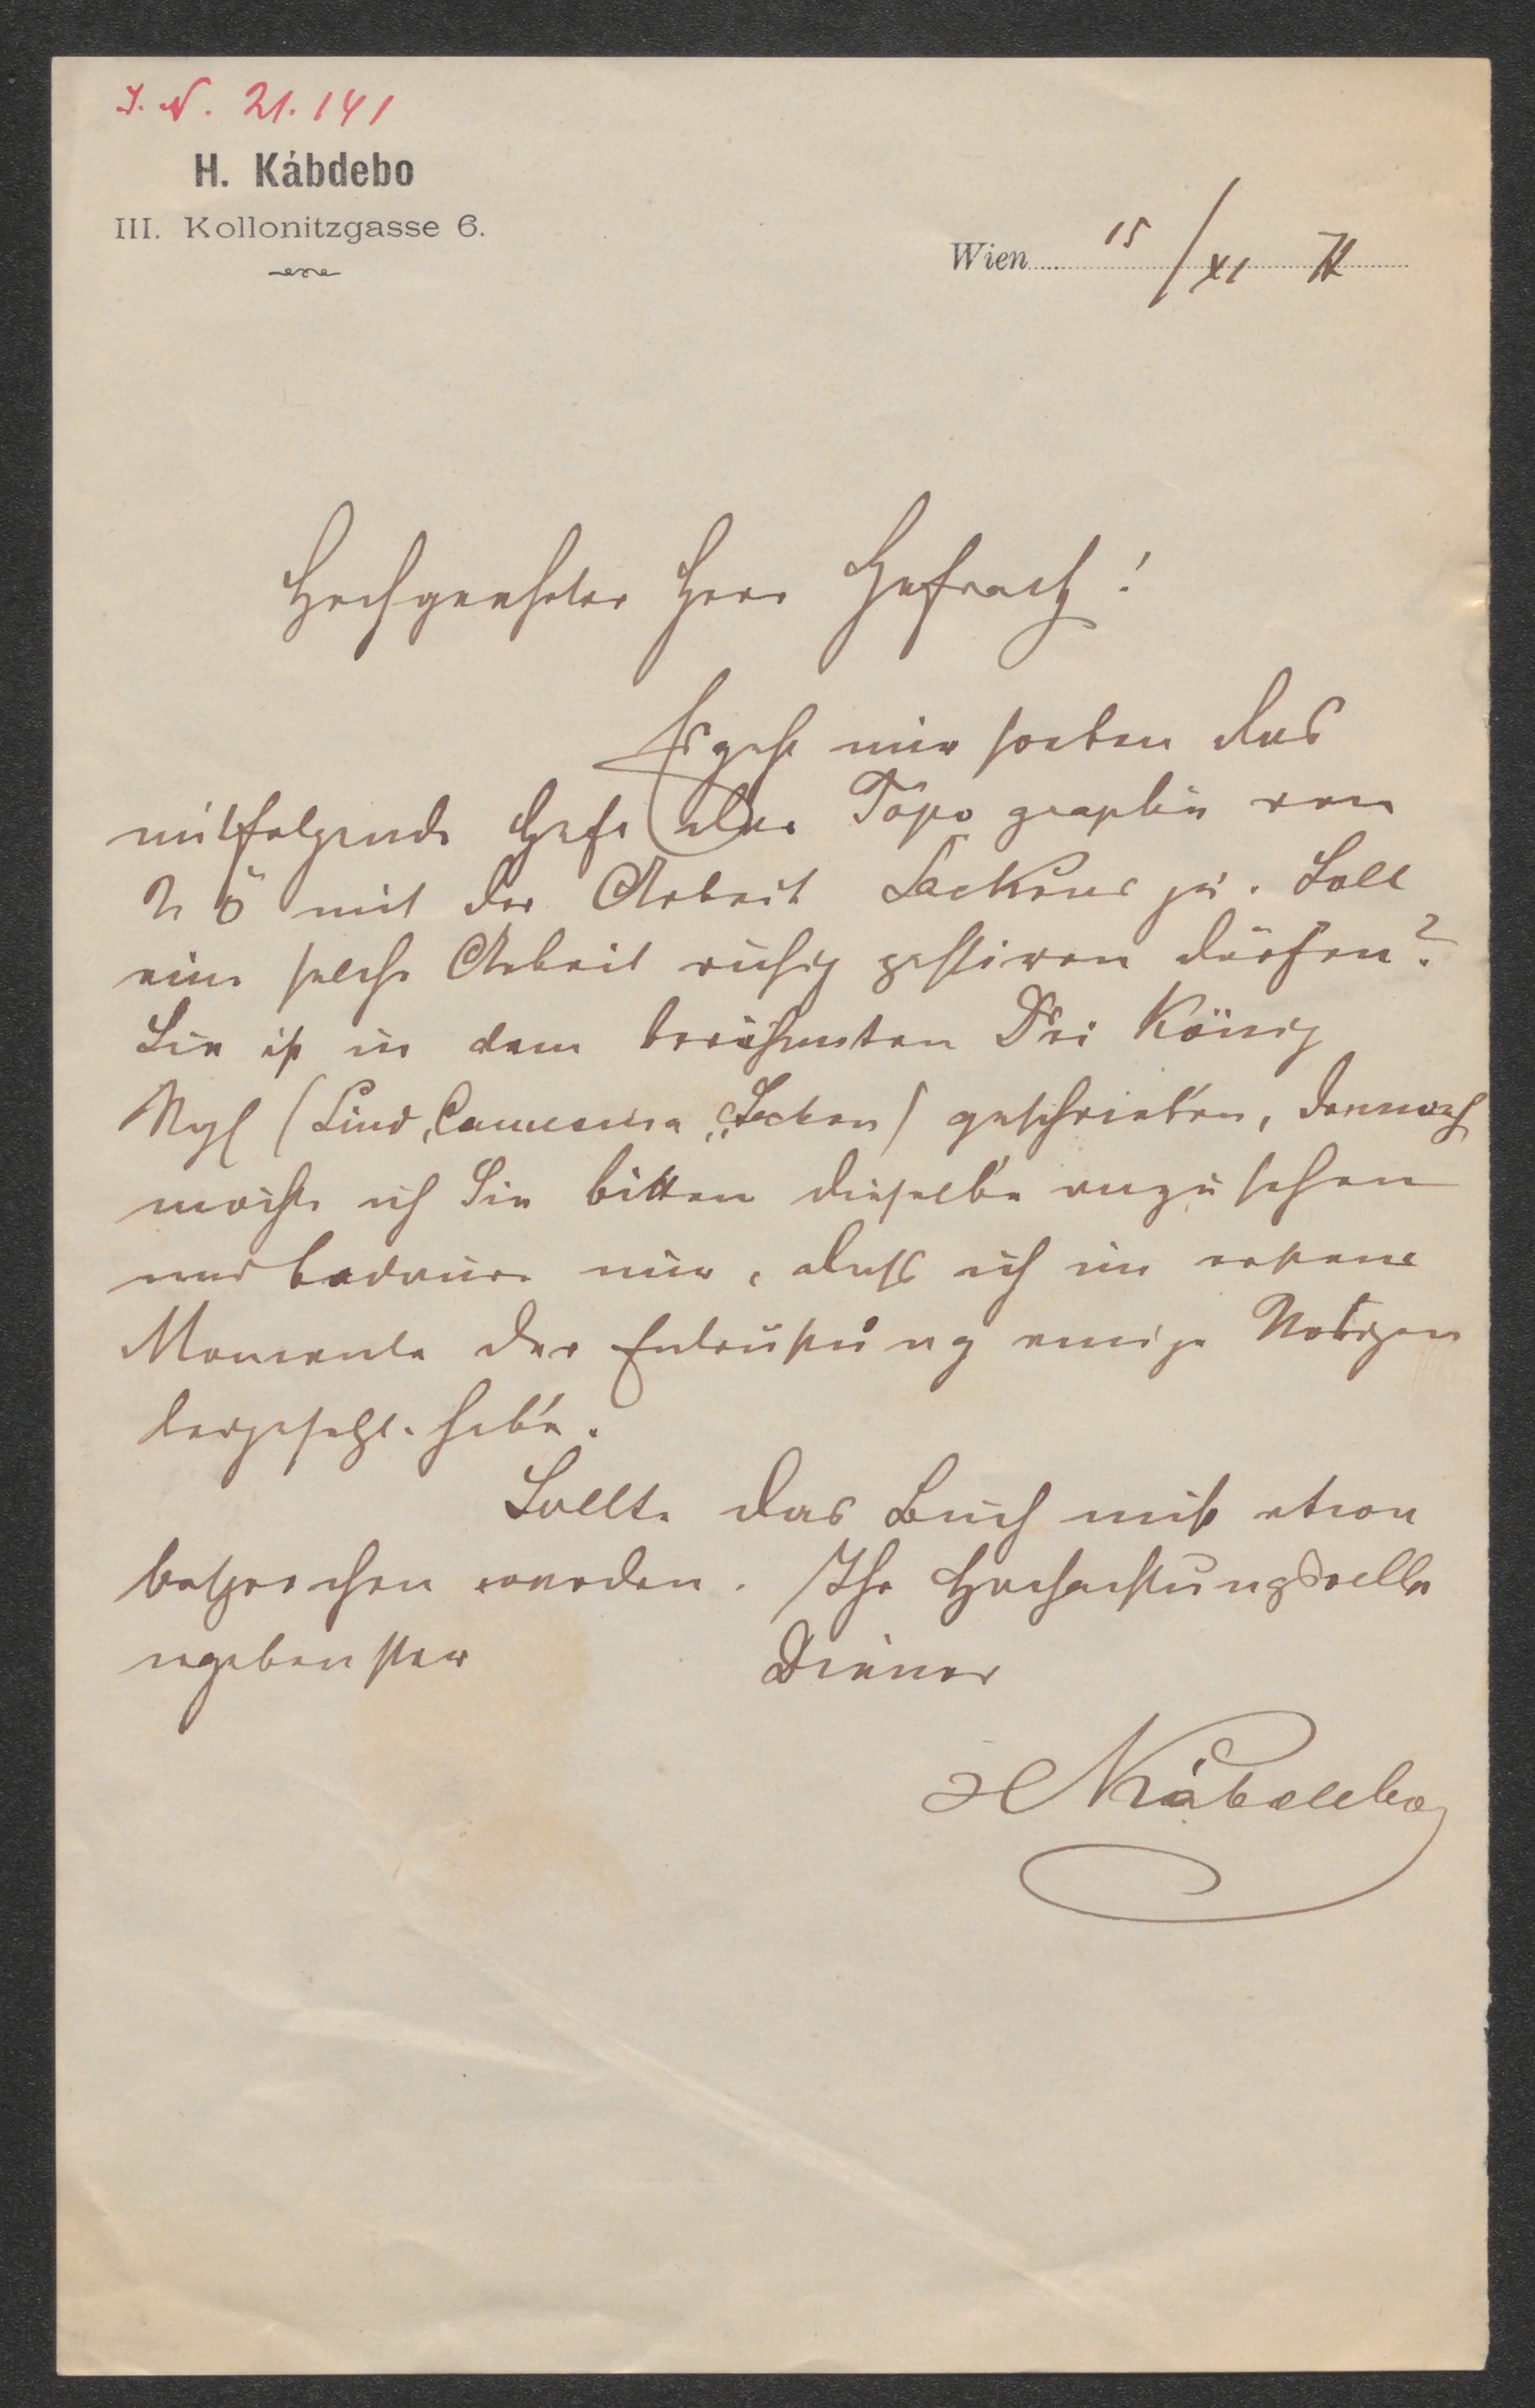 I. N. 21.141
H. Kábdebo
III. Kollonitzgasse 6.
Wien 15/XI
Hochgeehrter Herr Hofrath!
Es geht mir soeben das
mitfolgende Heft der Topographie von
N Ö mit der Arbeit Sackens zu. Soll
eine solche Arbeit ruhig passiren dürfen?
Sie ist in dem berühmten Drei König
(Lind, Camesina, Sacken) geschrieben, dennoch
möchte ich Sie bitten dieselbe anzusehen
und bedaure nur, dass ich im ersten
Momente der Entrüstung einige Notizen
hergesetzt habe.
Sollte das Buch nicht etwa
besprochen werden. Ihr Hochachtungsvollst
ergebenster Diener
H Kábdebo